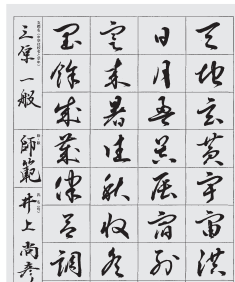 天地玄黄宇宙洪
日月盈昃辰宿列
寒来暑往秋收冬
閏餘成歳律呂調
三原一般 師範 井上尚